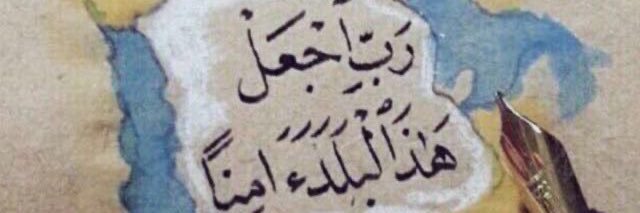 رَبِّ اجْعَلْ
هَٰذَا الْبَلَدَ ءَامِنًا